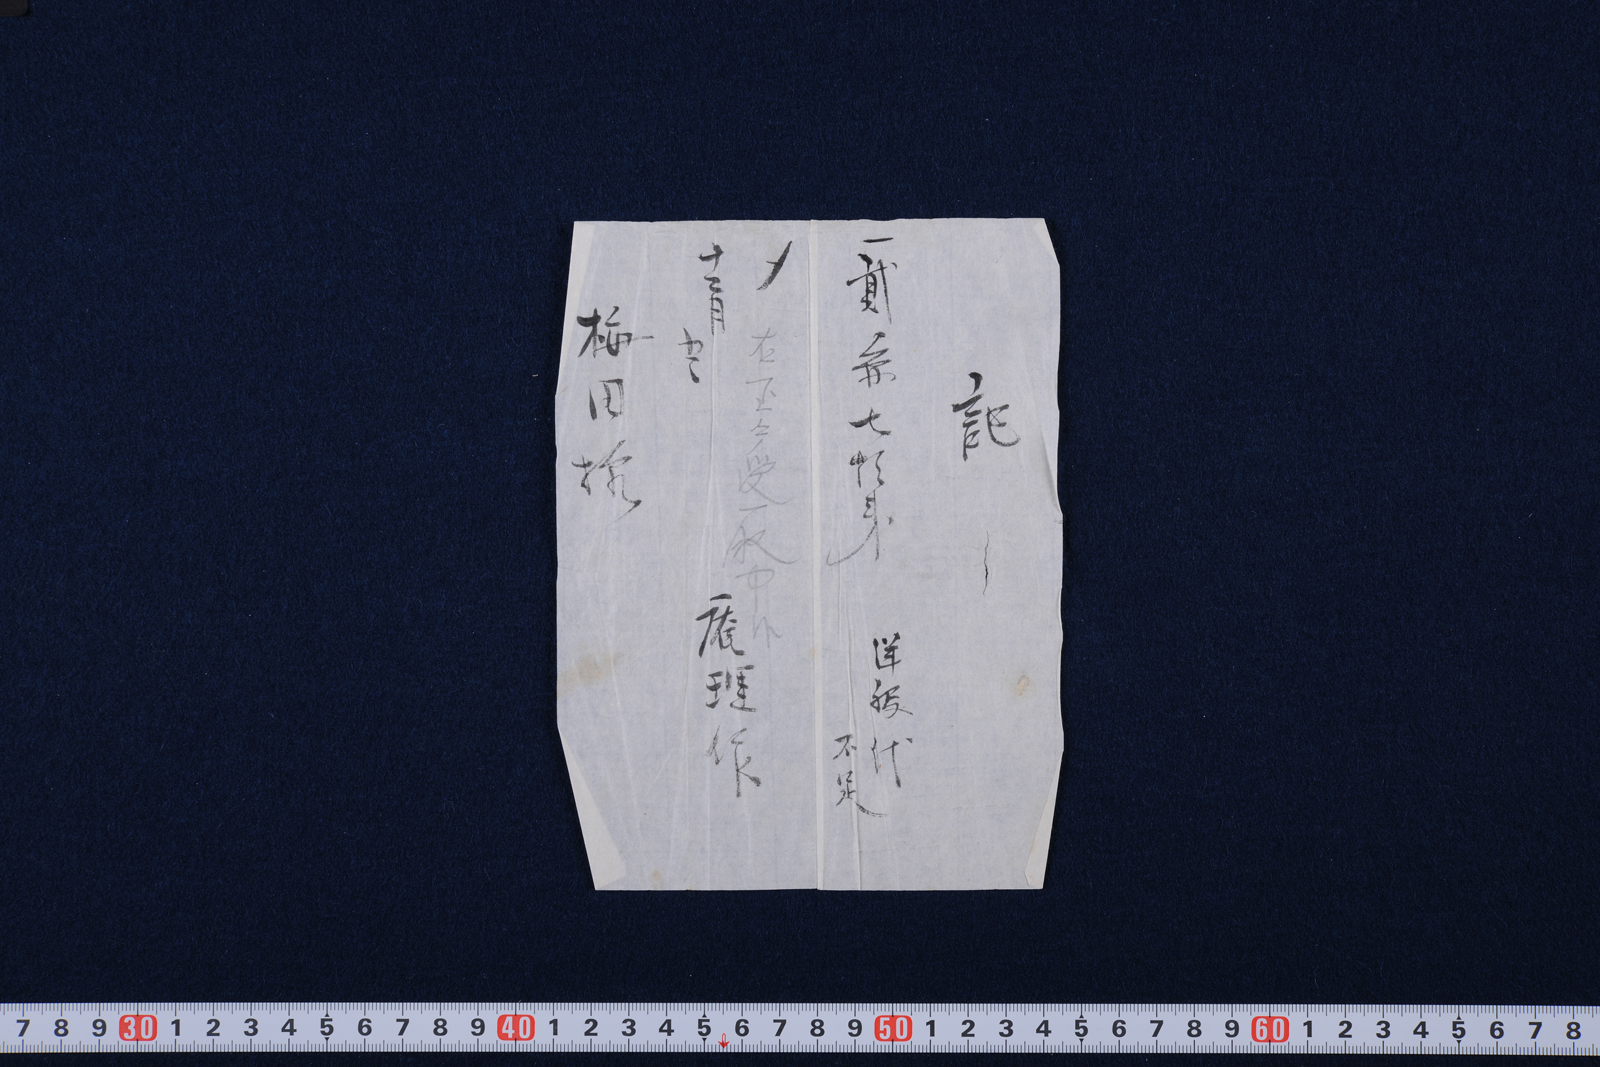 記
一貳朱七拾弐匁
洋服代
不足
〆
右正ニ受取申候
十二月廿二
庵理作
梅田様
7 8 9 30 1 2 3 4 5 6 7 8 9 40 1 2 3 4 5 6 7 8 9 50 1 2 3 4 5 6 7 8 9 60 1 2 3 4 5 6 7 8